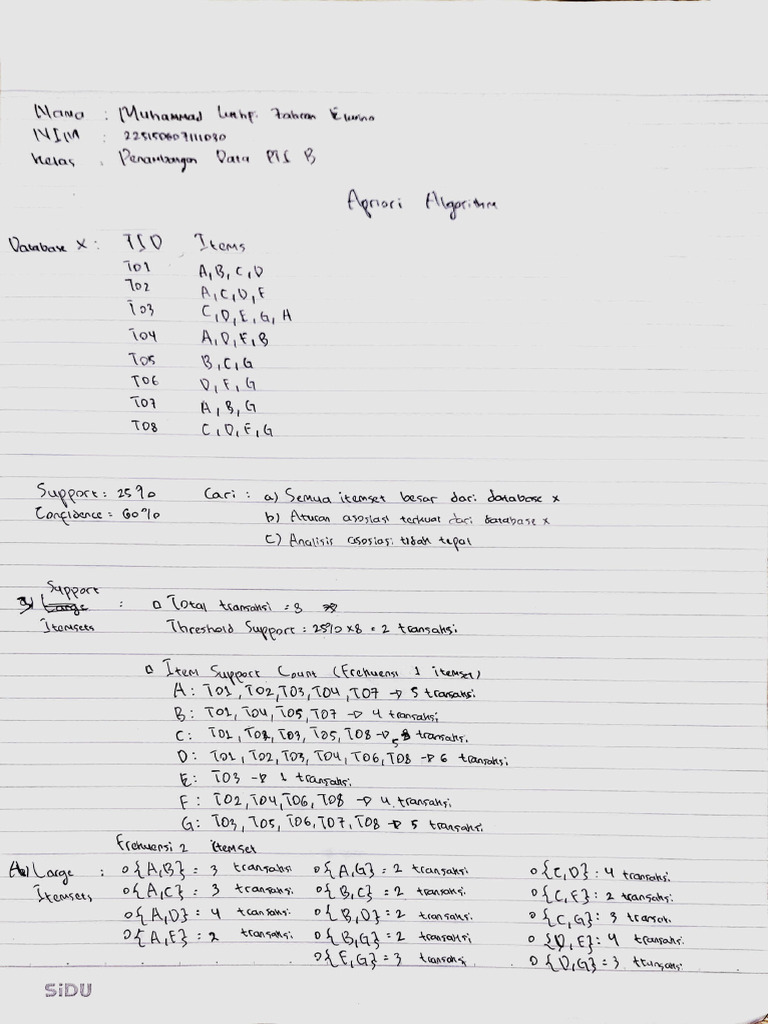 Nama : Muhammad Zahran
NIM : 225150607111030
Kelas : Penambangan Data PTI B
Apriori Algorithm
Database X : TID Items
T01 A, B, C, D
T02 A, C, D, F
T03 C, D, E, G, A
T04 A, D, F, B
T05 B, C, G
T06 D, F, G
T07 A, B, G
T08 C, D, F, G
Support : 25% Cari : a) Semua itemset besar dari database x
Confidence = 60% b) Aturan asosiasi terkuat dari database x
c) Analisis asosiasi tidak tepat
Support
a) Large : □ Total transaksi = 8
Itemsets Threshold Support : 25% x 8 = 2 transaksi
□ Item Support Count (Frekuensi 1 itemset)
A : T01, T02, T03, T04, T07 → 5 transaksi
B : T01, T04, T05, T07 → 4 transaksi
C : T01, T02, T03, T05, T08 → 5 transaksi
D : T01, T02, T03, T04, T06, T08 → 6 transaksi
E : T03 → 1 transaksi
F : T02, T04, T06, T08 → 4 transaksi
G : T03, T05, T06, T07, T08 → 5 transaksi
Frekuensi 2 itemset
A) Large : o {A,B} = 3 transaksi o {A,G} = 2 transaksi o {C,D} : 4 transaksi
Itemsets o {A,C} = 3 transaksi o {B,C} = 2 transaksi o {C,F} : 2 transaksi
o {A,D} = 4 transaksi o {B,D} = 2 transaksi o {C,G} = 3 transak
o {A,F} = 2 transaksi o {B,G} = 2 transaksi o {D,F} : 4 transaksi
o {F,G} = 3 transaksi o {D,G} = 3 transaksi
SiDU